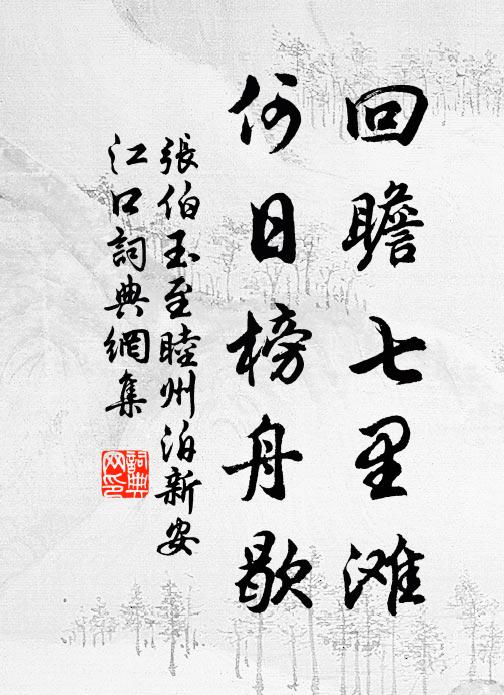 回瞻七里滩
何日榜舟歇
張伯玉至睦州泊新安
江口詞典網集
詞典
网印